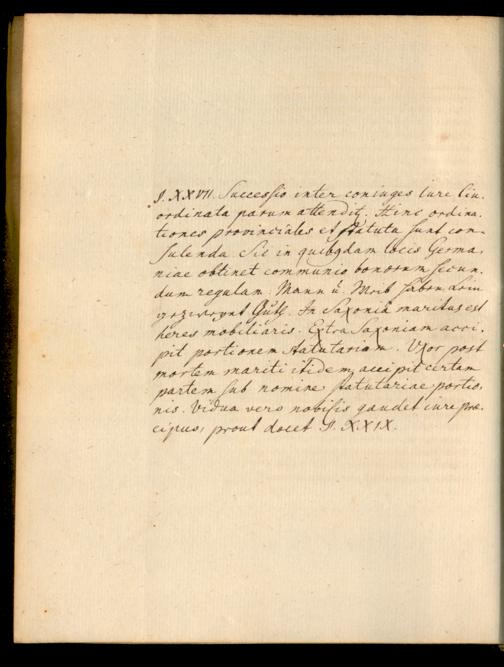 §. XXVII. Successio inter coniuges iure Civ.
ordinata parum attenditꝫ. Hinc ordina„
tiones provinciales et statuta sunt con„
sulenda. Sic in quibꝫdam locis Germa„
niae obtinet communio bonorum secun„
dum regulam: Mann u. Weib haben kein
Gutz. In Saxonia maritus est
heres mobiliaris. Extra Saxoniam acci„
pit portionem statutariam. Uxor post
mortem mariti itidem accipit certam
partem sub nomine statutariae portio„
nis. Vidua vero nobilis gaudet iure præ„
cipuo, prout docet §. XXIX.